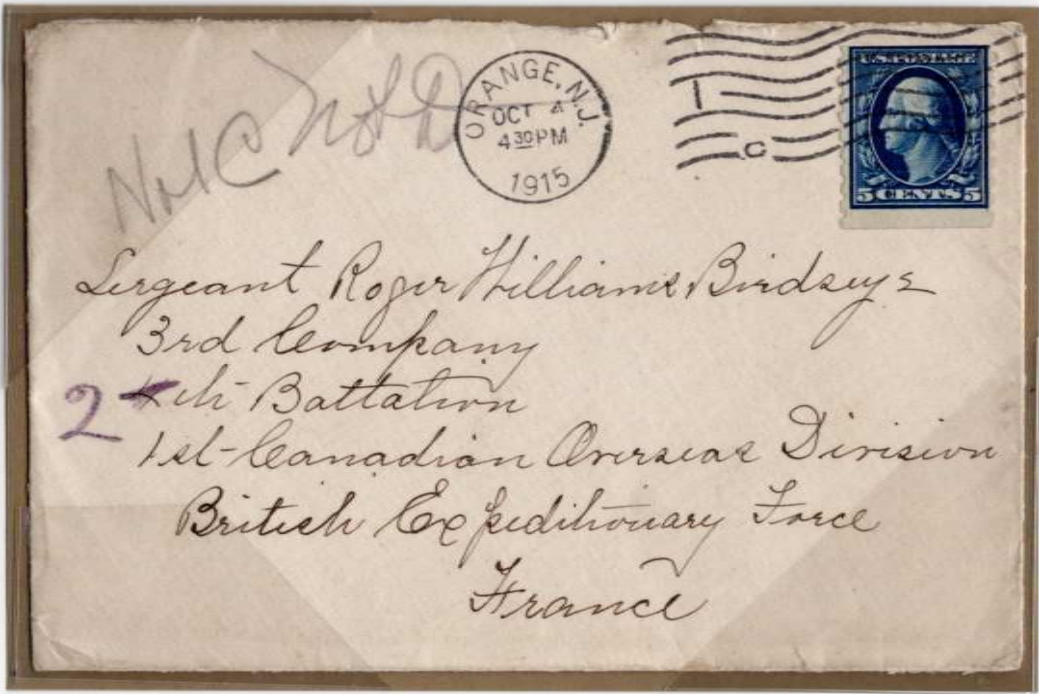 ORANGE, N.J.
OCT 4
4 30 PM
1915
1
C
5 CENTS 5
Sergeant Roger Williams Birdseye
3rd Company
2 4th Battalion
1st Canadian Overseas Division
British Expeditionary Force
France